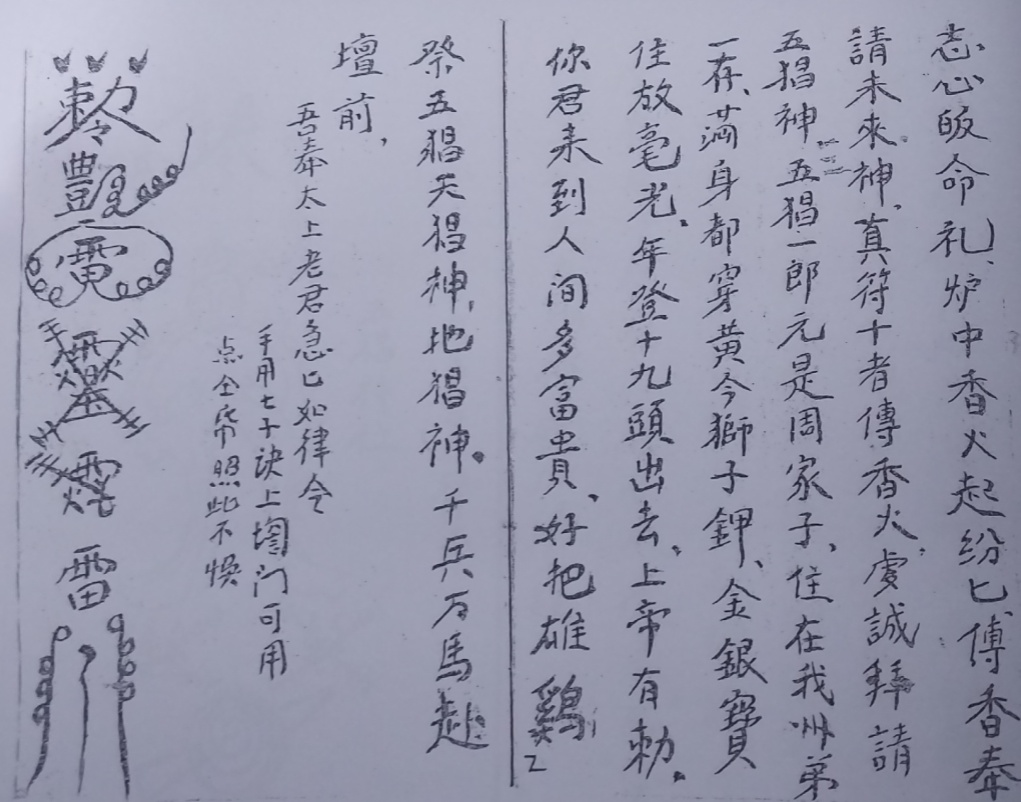 志心皈命礼、炉中香火起纷匕、傳香奉
請未來神、真符十者傳香火、虔誠拜請
五猖神、五猖一郎元是周家子、住在我州弟
一存、满身都穿黄今獅子鉀、金銀寶貝
住放毫光。年登十九頭出去、上帝有勅。
你君来到人间多富貴、好把雄鷄
祭五猖天猖神、地猖神。千兵万馬赴
壇前，
吾奉太上老君急匕如律令
手用七子诀上墰门可用
点全帋照此不悮
勅令
雷